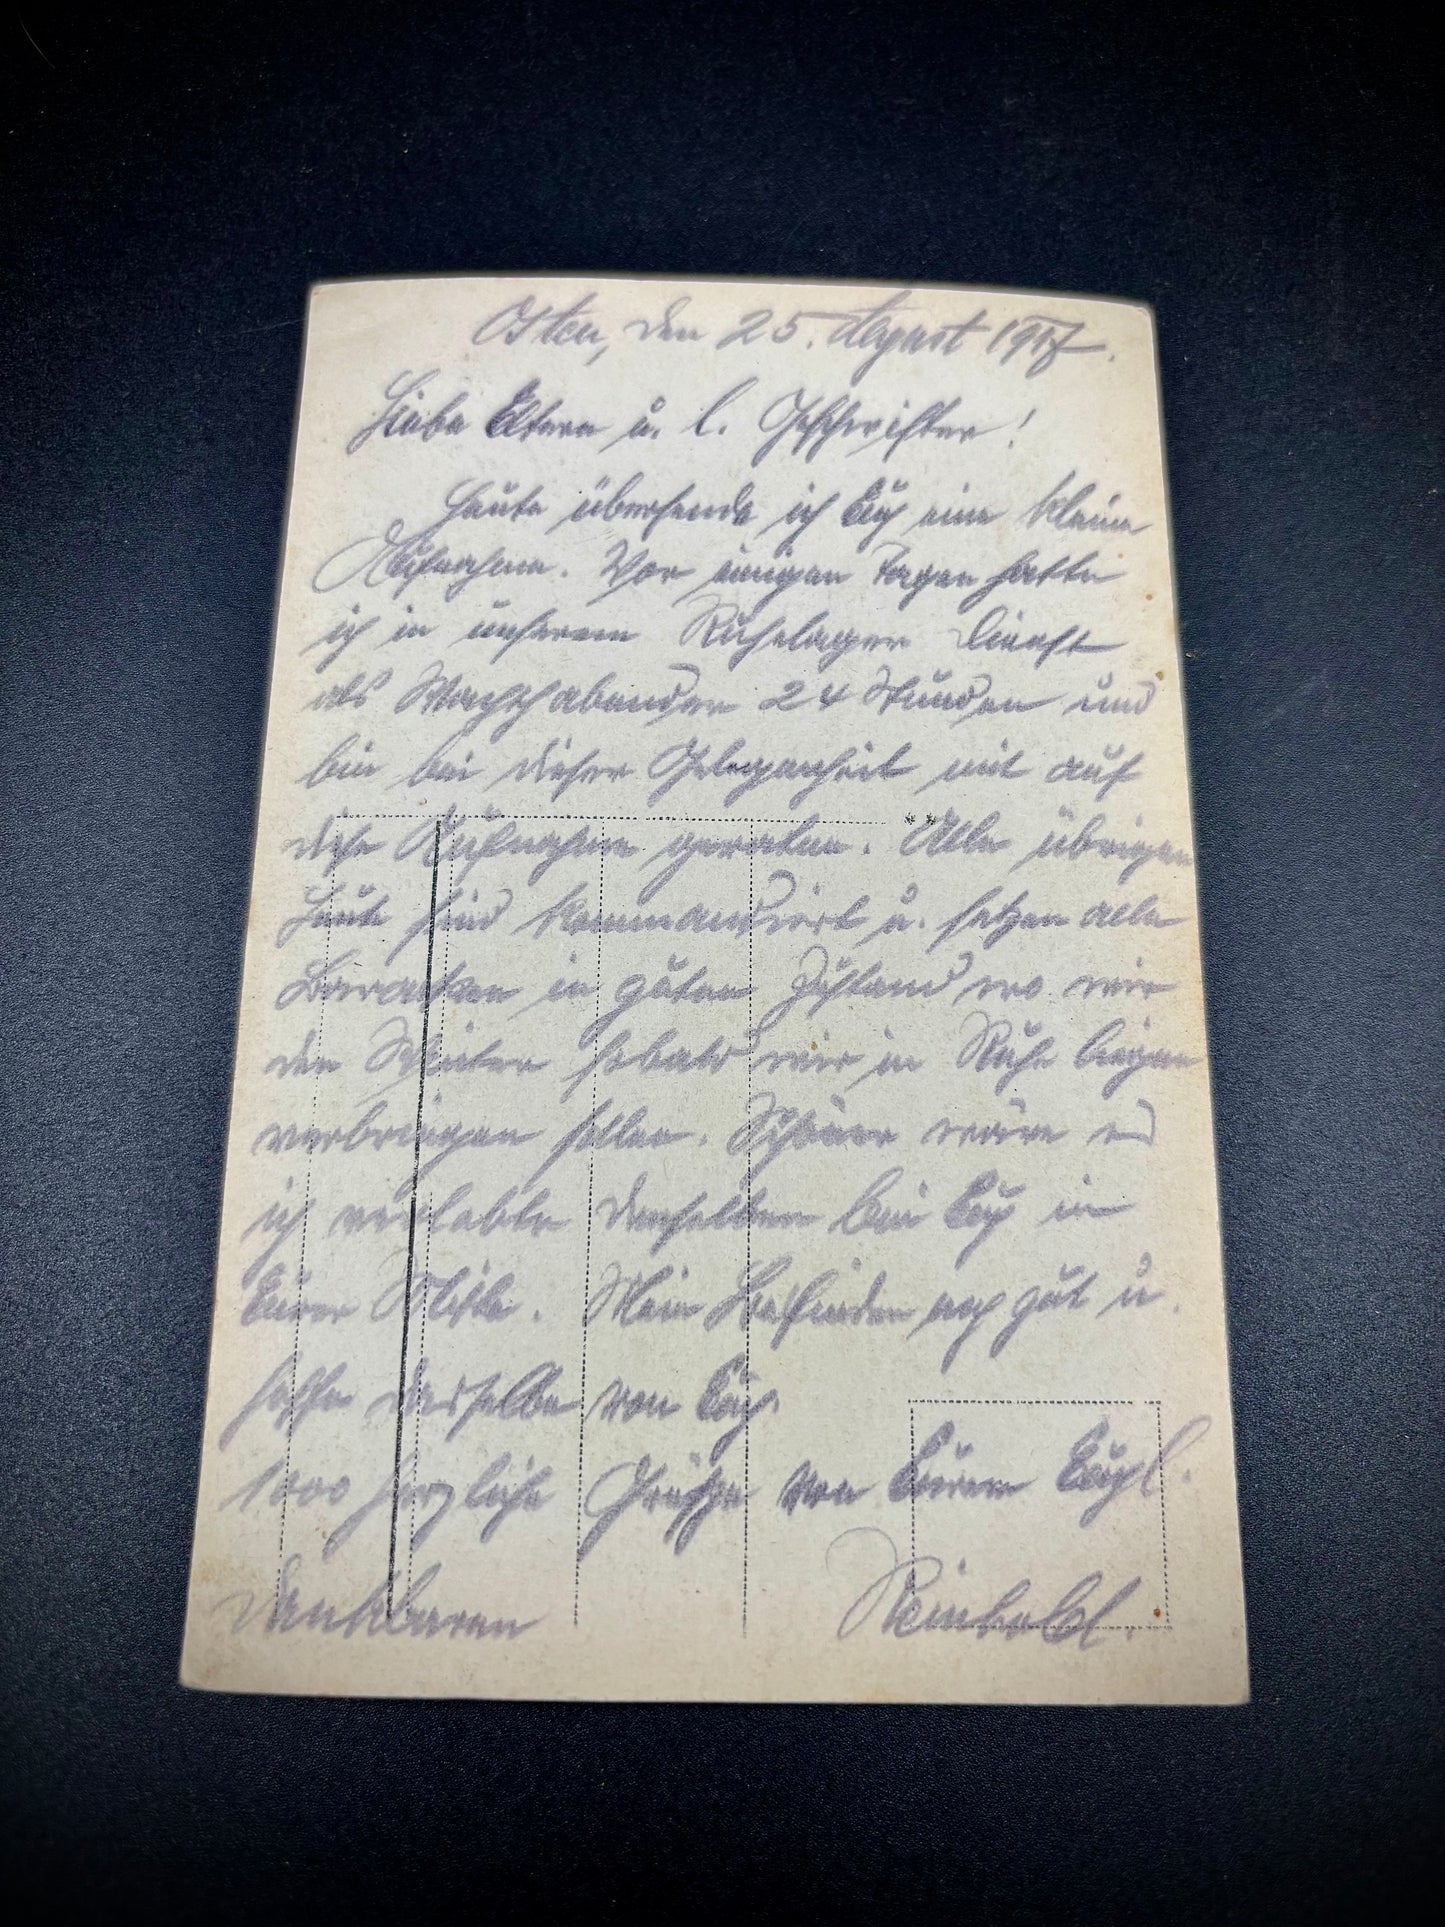 Osten, den 25. August 1917.
Liebe Eltern u. l. Geschwister!
Heute übersende ich Euch eine kleine
Aufnahme. Vor einigen Tagen hatte
ich in unserem Ruhelager Dienst
als Wachhabender 24 Stunden und
bin bei dieser Gelegenheit mit auf
diese Aufnahme geraten. Alle übrigen
Leute sind kommandiert u. setzen alle
Baracken in guten Zustand wo wir
den Winter sobald wir in Ruhe liegen
verbringen sollen. Schöner wäre es
ich verlebte denselben bei Euch in
Eurer Mitte. Mein Befinden noch gut u.
hoffe dasselbe von Euch.
1000 herzliche Grüße von Eurem Euch l.
dankbaren Reinhold.